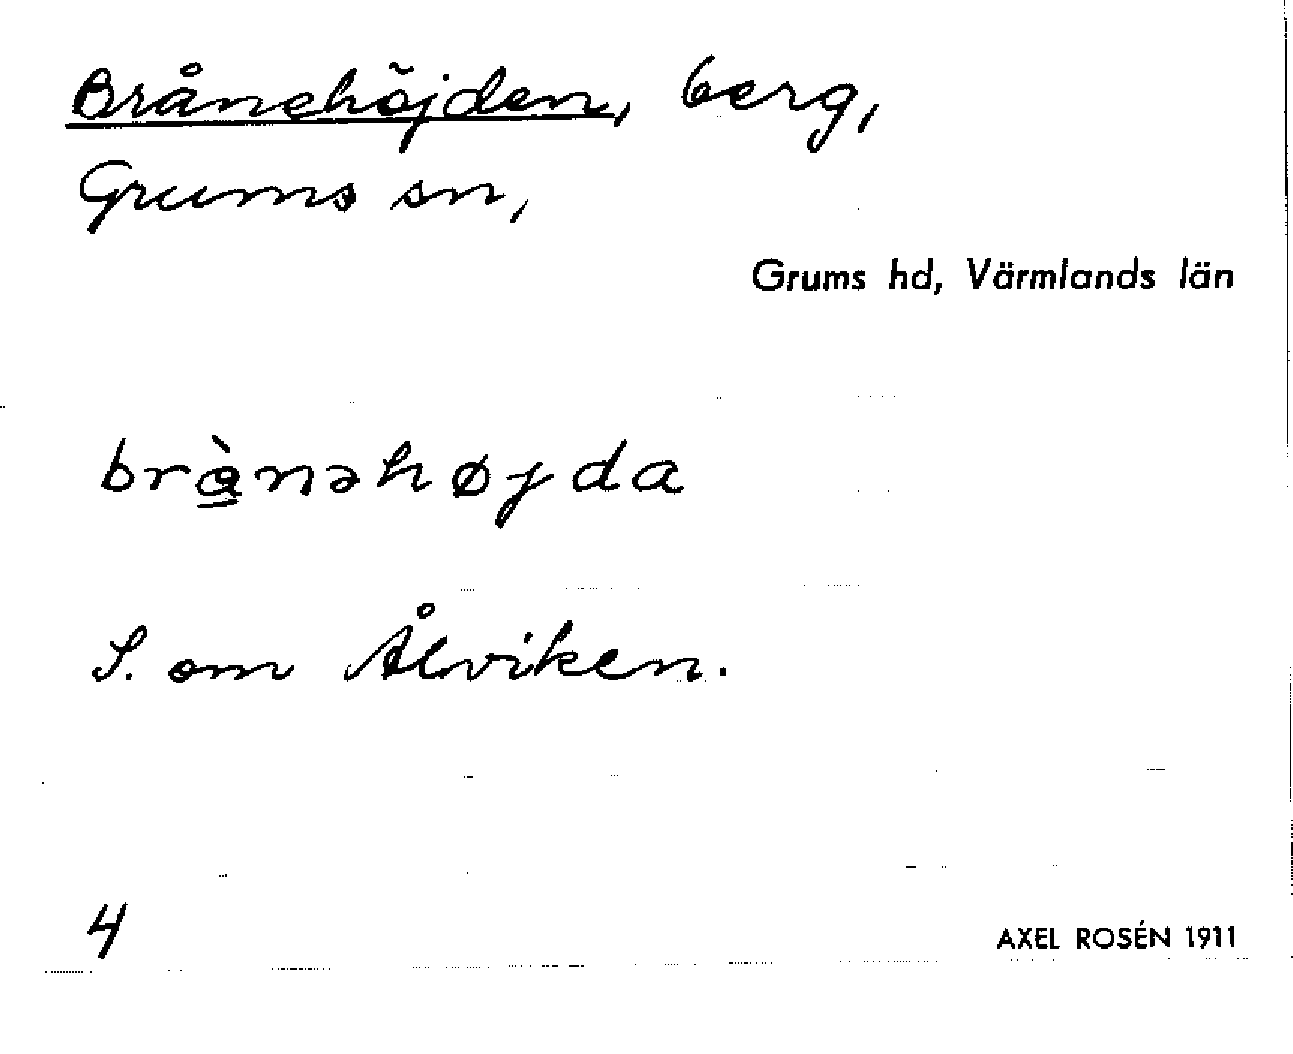 Brånehöjden, berg,
Grums sn,
Grums hd, Värmlands län
brå̀nəhøjda
S. om Ålviken.
4
AXEL ROSÉN 1911